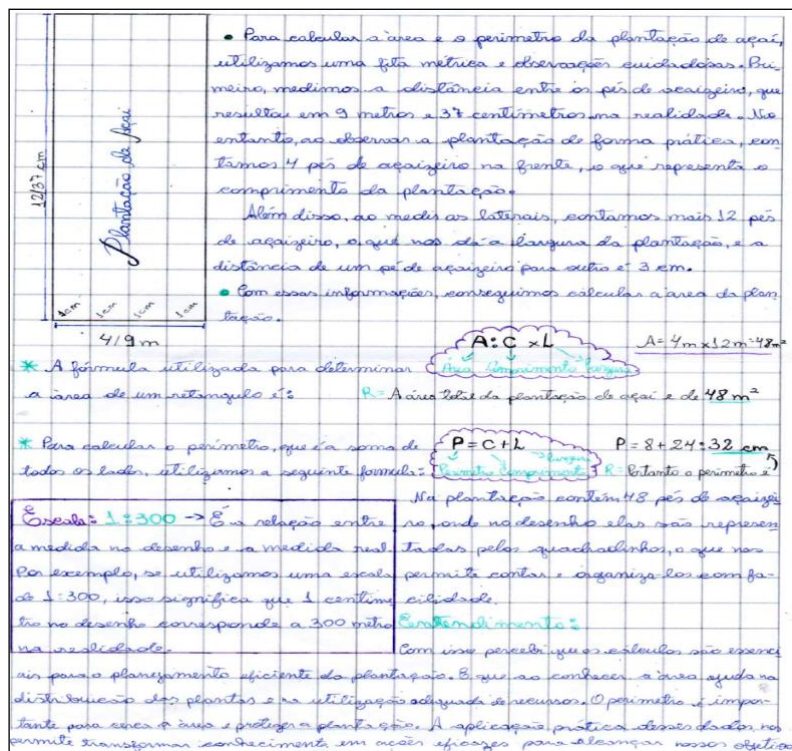 • Para calcular a área e o perimetro da plantação de açaí,
utilizamos uma fita métrica e observações cuidadosas. Pri
meiro, medimos a distância entre os pés de acaizeiro, que
resultou em 9 metros e 37 centímetros na realidade. No
entanto, ao observar a plantação de forma prática, con
tamos 4 pés de açaizeiro na frente, o que representa o
comprimento da plantação.
Além disso, ao medir as laterais, contamos mais 12 pés
de açaizeiro, o que nos dá a largura da plantação, e a
distância de um pé de açaizeiro para outro é 3 cm.
• Com essas informações, conseguimos calcular a área da plan
tação.
12/37 cm
Plantação de Açai
1cm 1cm 1cm 1cm
4/9 m
* A fórmula utilizada para determinar
a área de um retangulo é:
A: C x L
Área Comprimento Largura
A= 4m x 12m = 48m²
R= A área total da plantação de açaí e de 48 m²
* Para calcular o perímetro, que é a soma de
todos os lados, utilizamos a seguinte formula:
P = C + L
largura
Perimetro Comprimento
P = 8 + 24 = 32 cm
R= Portanto o perimetro é
Escala: 1:300 → É a relação entre
a medida no desenho e a medida real.
Por exemplo, se utilizamos uma escala
de 1:300, isso significa que 1 centime
tro no desenho corresponde a 300 metro
na realidade.
Na plantação contém 48 pés de açaizei
ro, onde no desenho elas são represen
tadas pelos quadradinhos, o que nos
permite contar e organiza-los com fa-
cilidade.
Eentendimento:
Com isso percebi que os cálculos são essenci
ais para o planejamento eficiente da plantação. E que ao conhecer a área ajuda na
distribuição das plantas e na utilização adequada de recursos. O perimetro é impor-
tante para cerca a área e proteger a plantação. A aplicação prática desses dados, nos
permite transformar conhecimento em ações eficazes para alcança nossos objetivo